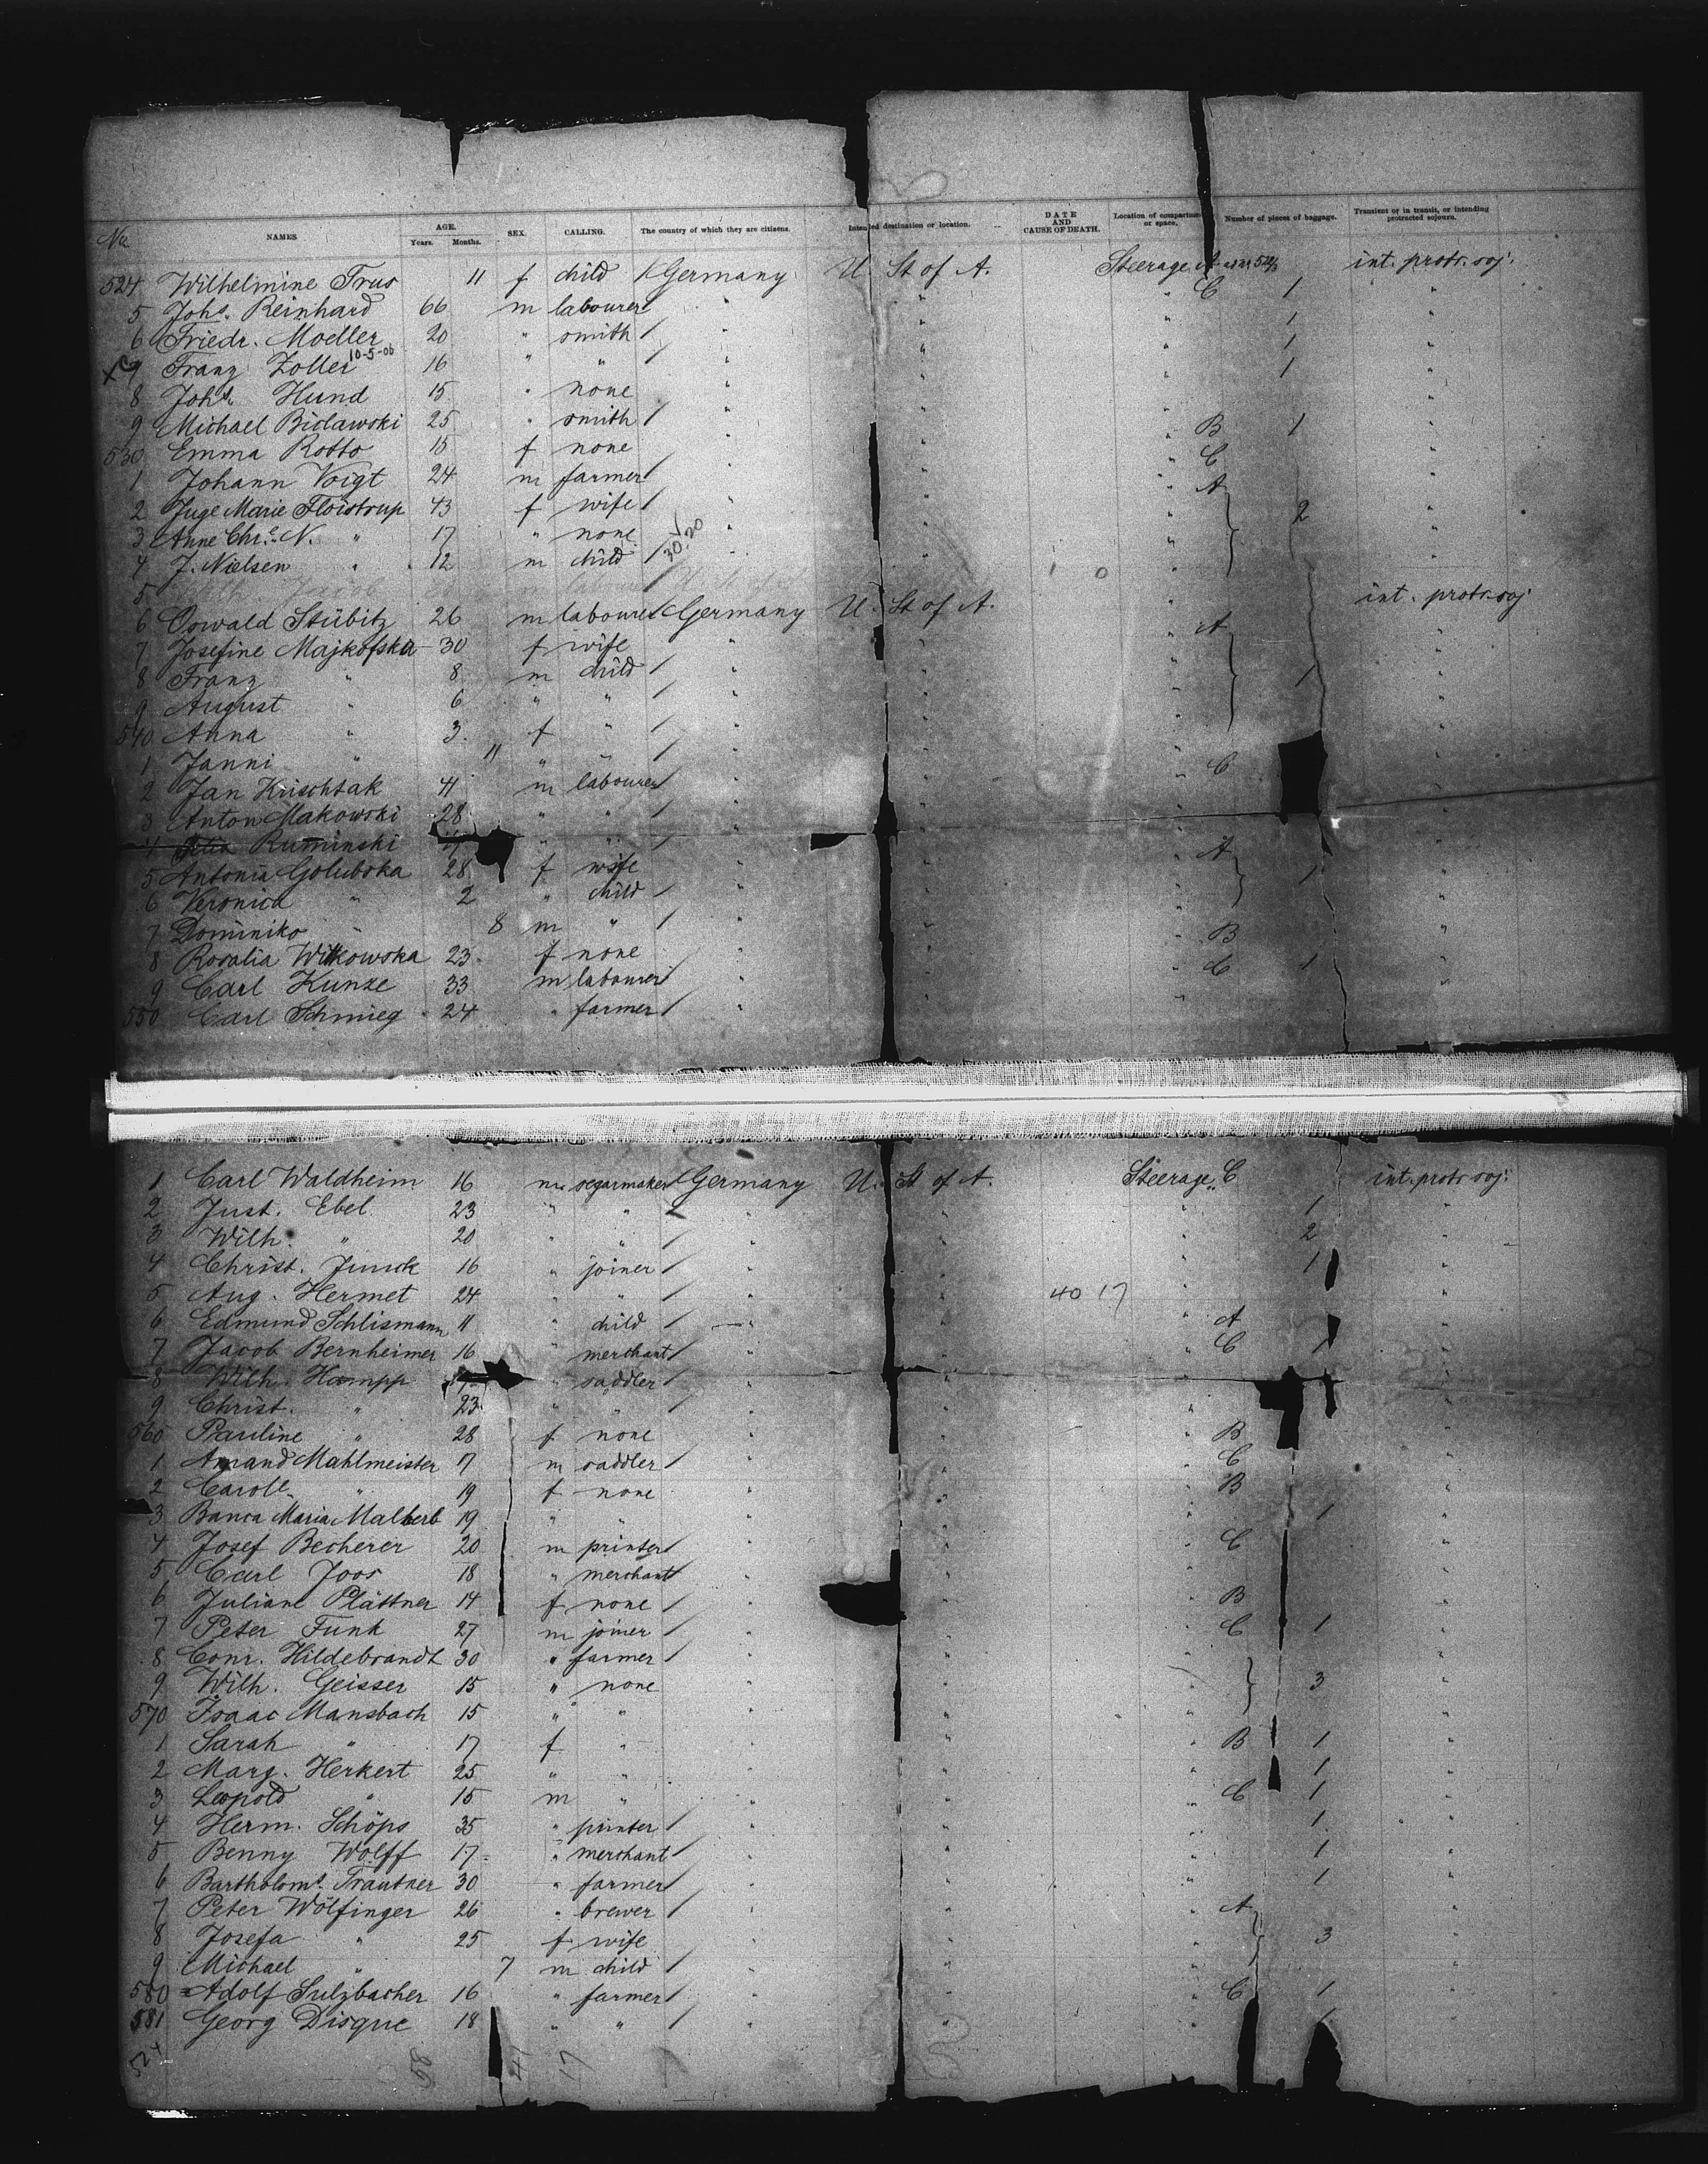 No NAMES AGE. Years. Months. SEX. CALLING. The country of which they are citizens. Intended destination or location. DATE AND CAUSE OF DEATH. Location of compartment or space. Number of pieces of baggage. Transient or in transit, or intending protracted sojourn.
524 Wilhelmine Trus 11 f child Germany U. St of A. Steerage A int. protr. soj.
5 Johs. Reinhard 66 m labourer " " " C 1 "
6 Friedr. Moeller 20 " smith " " " 1 "
10-5-06
7 Franz Zoller 16 " " " " " 1 "
8 Johs. Hund 15 " none " " " 1 "
9 Michael Biolawski 25 " smith " " " "
530 Emma Rotto 15 f none " " " B 1 "
1 Johann Voigt 24 m farmer " " " C "
2 Juge Marie Floistrup 43 f wife " " " A 2 "
3 Anne Chr. N. " 17 " none " " " "
4 J. Nielsen " 12 m child " " " "
30.20
5
6 Oswald Stübitz 26 m labourer Germany U. St of A. int. protr. soj
7 Josefine Majkofska 30 f wife " " " A 1 "
8 Franz " 8 m child " " " "
9 August " 6 " " " " " "
540 Anna " 3 f " " " " "
1 Janni " 11 " " " " " "
2 Jan Krischtak 41 m labourer " " " C "
3 Anton Makowski 28 " " " " " "
4 Ruminski " " " " " "
5 Antonia Golubska 28 f wife " " " A 1 "
6 Veronica " 2 " child " " " "
7 Dominiko " 8 m " " " " "
8 Rosalia Witkowska 23 f none " " " B "
9 Carl Kunze 33 m labourer " " " C 1 "
550 Carl Schmieg 24 " farmer " " " "
1 Carl Waldheim 16 m segarmaker Germany U. St of A. Steerage C int. protr. soj.
2 Just. Ebel 23 " " " " " 1 "
3 Wilh. " 20 " " " " " 2 "
4 Christ. Junck 16 " joiner " " " 1 "
5 Aug. Hermet 24 " " " " 40 17 " "
6 Edmund Schlismann 11 " child " " " A "
7 Jacob Bernheimer 16 " merchant " " " C 1 "
8 Wilh. Hampp " saddler " " " "
9 Christ. " 23 " " " " " "
560 Pauline " 28 f none " " " B "
1 Amand Mahlmeister 17 m saddler " " " C "
2 Carole " 19 f none " " " B "
3 Banca Maria Malberb 19 " " " " " 1 "
4 Josef Becherer 20 m printer " " " C "
5 Carl Joos 18 " merchant " " " "
6 Juliane Plättner 14 f none " " " B "
7 Peter Funk 27 m joiner " " " C 1 "
8 Conr. Hildebrandt 30 " farmer " " " "
9 Wilh. Geisser 15 " none " " " 3 "
570 Isaac Mansbach 15 " " " " " "
1 Sarah " 17 f " " " " B 1 "
2 Marg. Herkert 25 " " " " " 1 "
3 Leopold " 15 m " " " " C 1 "
4 Herm. Schöps 35 " printer " " " 1 "
5 Benny Wolff 17 " merchant " " " 1 "
6 Bartholoms. Trautner 30 " farmer " " " 1 "
7 Peter Wölfinger 26 " brewer " " " A "
8 Josefa " 25 f wife " " " 3 "
9 Michael " 7 m child " " " "
580 Adolf Sulzbacher 16 " farmer " " " C 1 "
581 Georg Disque 18 " " " " " 1 "